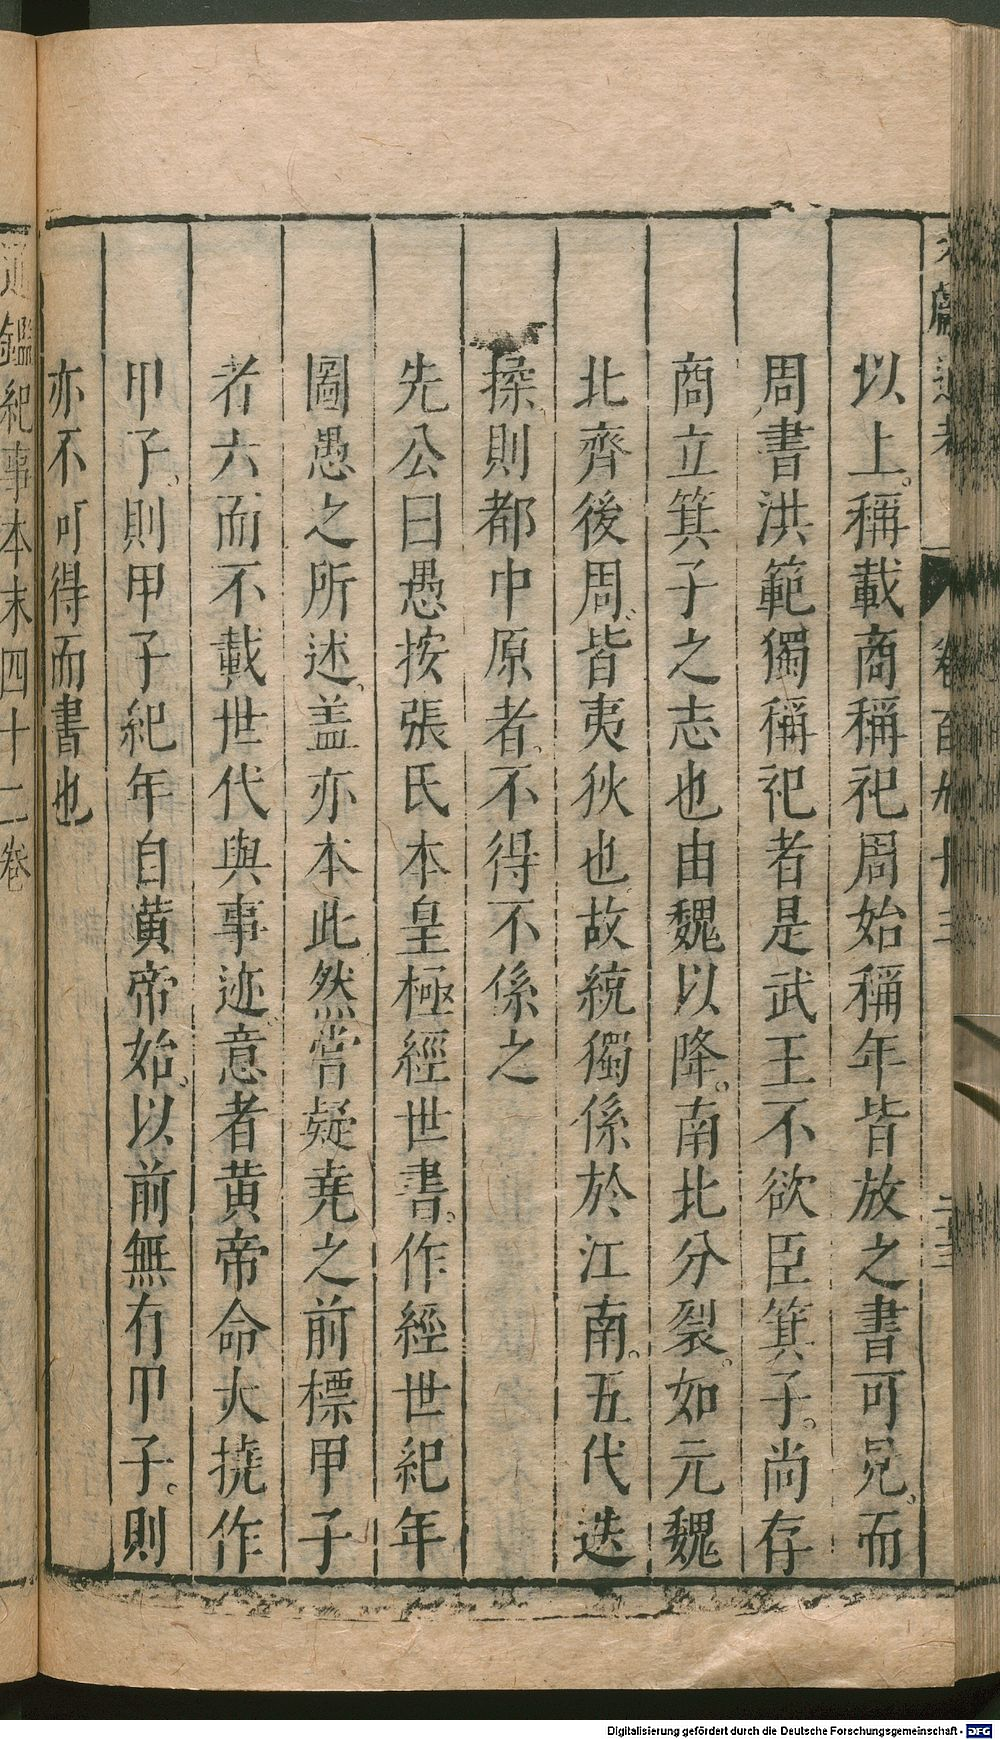 文獻通考 卷百九十三 二十三
以上稱載商稱祀周始稱年皆放之書可見而
周書洪範獨稱祀者是武王不欲臣箕子尚存
商立箕子之志也由魏以降南北分裂如元魏
北齊後周皆夷狄也故統獨係於江南五代迭
擾則都中原者不得不係之
先公曰愚按張氏本皇極經世書作經世紀年
圖愚之所述盖亦本此然嘗疑堯之前標甲子
者六而不載世代與事迹意者黄帝命大撓作
甲子則甲子紀年自黄帝始以前無有甲子則
亦不可得而書也
通鑑紀事本末四十二卷
Digitalisierung gefördert durch die Deutsche Forschungsgemeinschaft - DFG